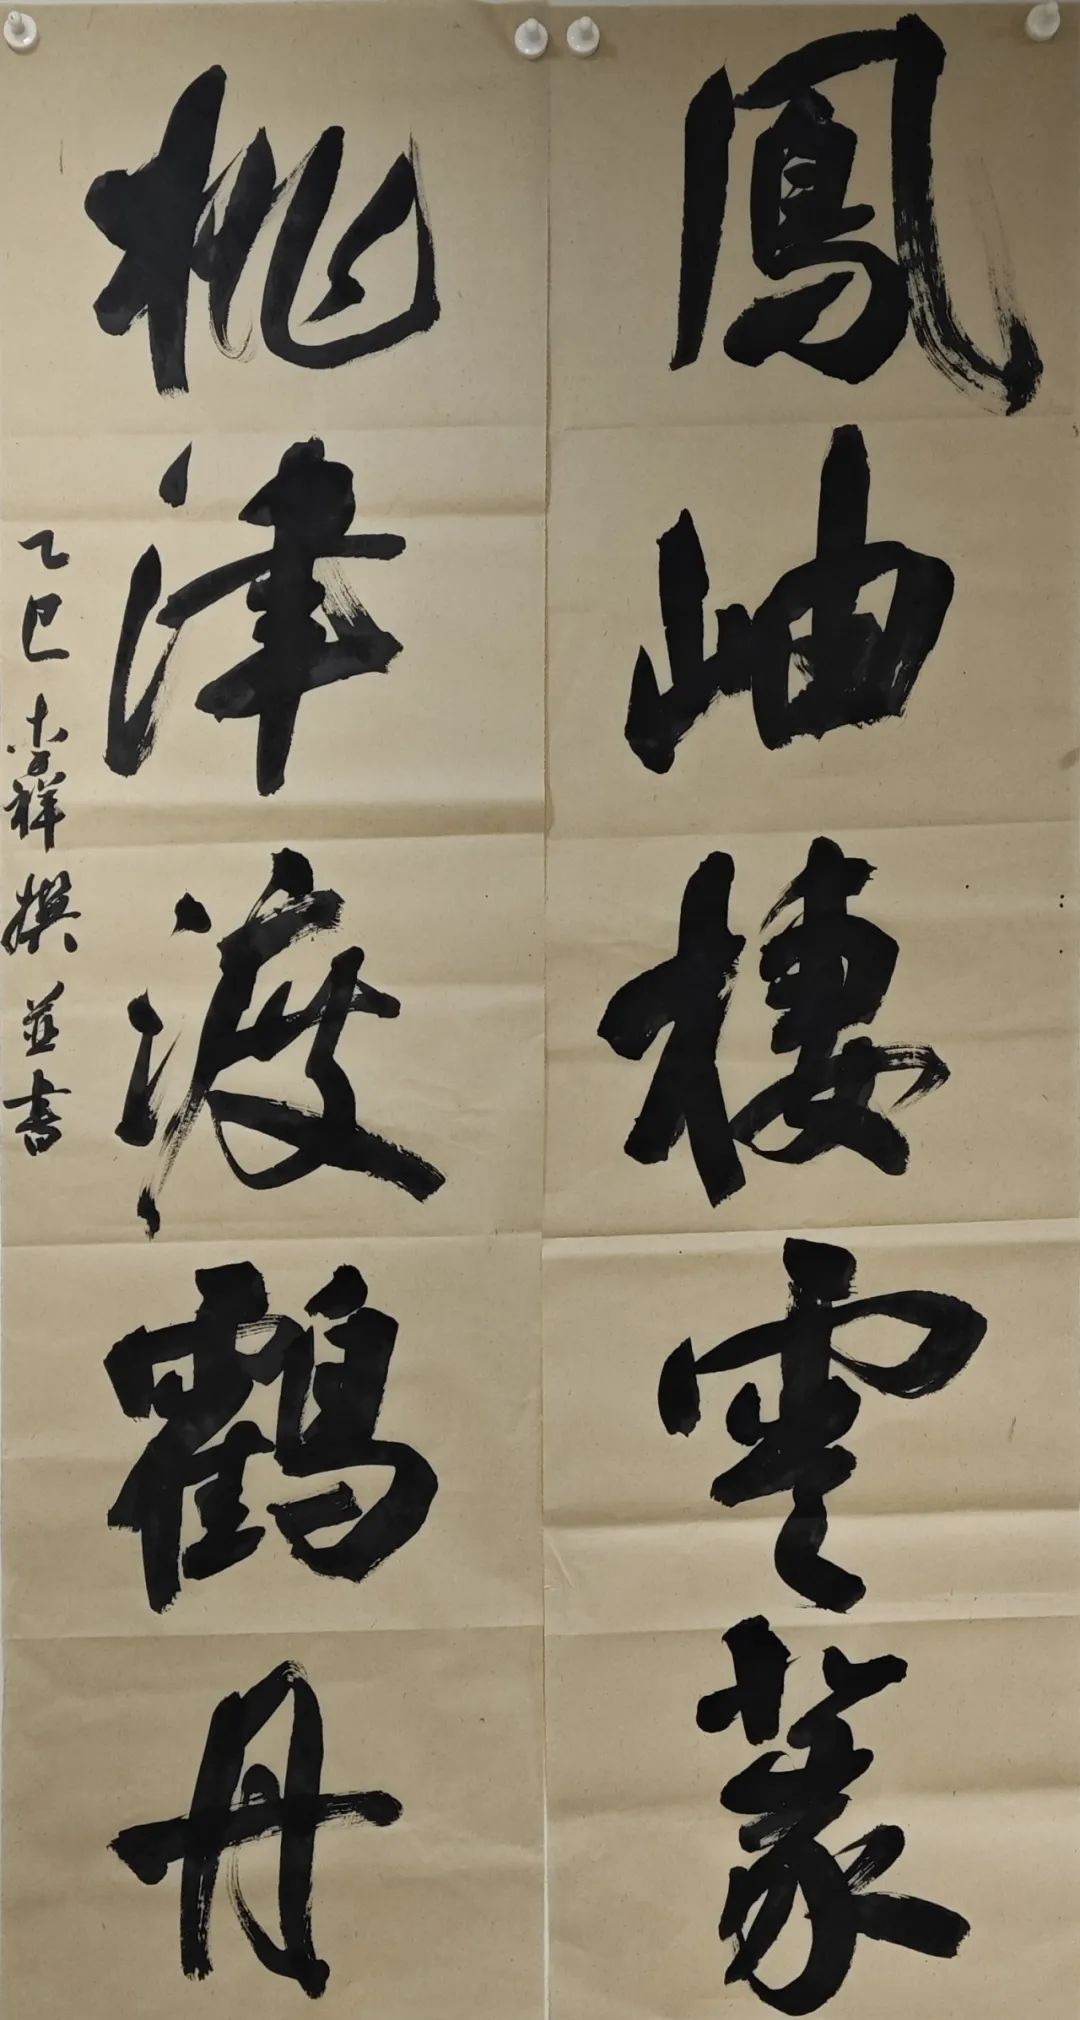 鳳岫棲雲篆
桃津渡鶴丹
乙巳李祥撰並書